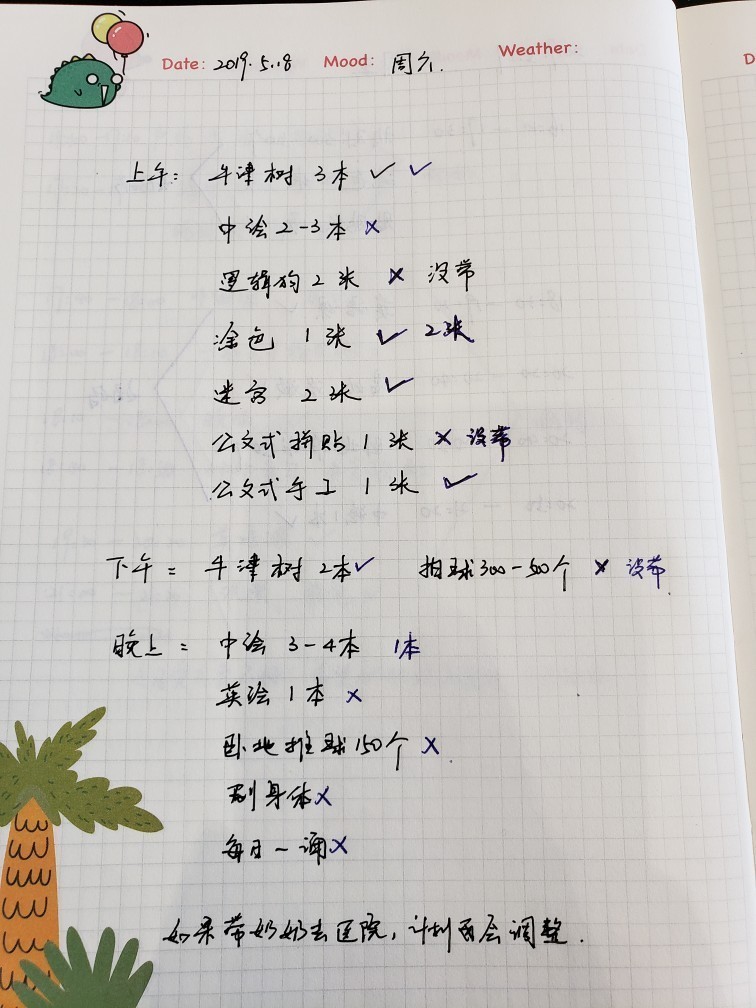 Date: 2019.5.18 Mood: 周六. Weather:
上午: 牛津树 3本 ✓ ✓
中绘 2-3本 ×
逻辑狗 2张 × 没带
涂色 1张 ✓ 2张
迷宫 2张 ✓
公文式拼贴 1张 × 没带
公文式手工 1张 ✓
下午: 牛津树 2本 ✓ 拍球300-500个 × 没带
晚上: 中绘 3-4本 1本
英绘 1本 ×
卧地推球150个 ×
刮身体 ×
每日一诵 ×
如果带奶奶去医院, 计划再会调整.